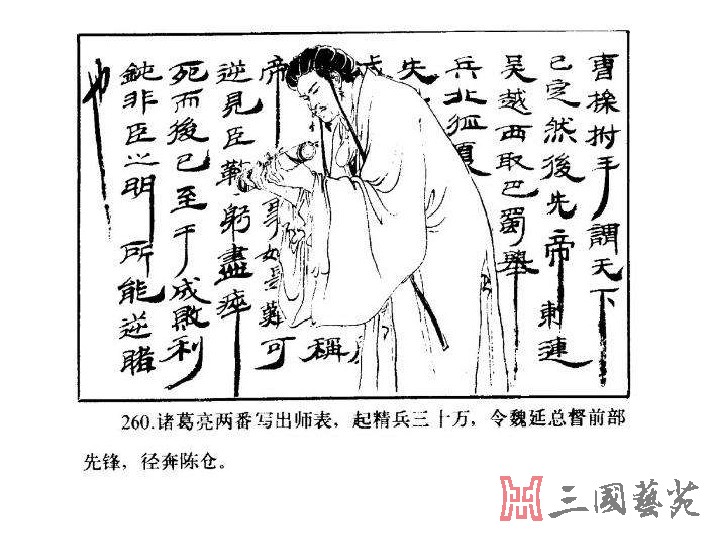 曹操拊手謂天下
已定然後先帝東連
吳越西取巴蜀舉
兵北征夏
失
成
稱
帝事如是難可
逆見臣鞠躬盡瘁
死而後已至于成敗利
鈍非臣之明所能逆睹
也
260.诸葛亮两番写出师表，起精兵三十万，令魏延总督前部
先锋，径奔陈仓。
三國藝苑